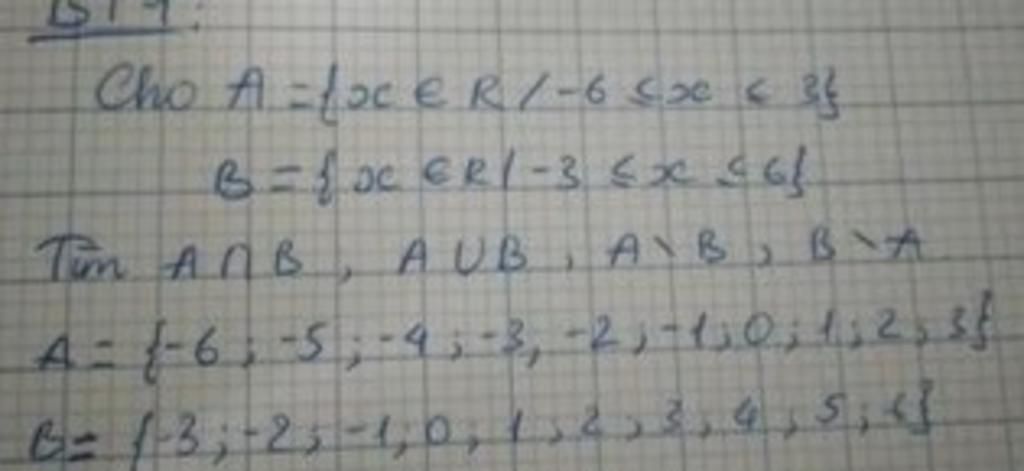 Cho A = {x ∈ R / -6 ≤ x ≤ 3}
B = {x ∈ R / -3 ≤ x ≤ 6}
Tìm A ∩ B, A ∪ B, A \ B, B \ A
A = {-6; -5; -4; -3, -2; -1; 0; 1; 2; 3}
B = {-3; -2; -1; 0; 1; 2; 3; 4; 5; 6}